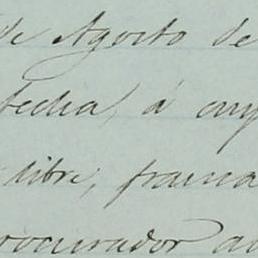 de Agosto de
fecha, á cuy
libre, franca
procurador au